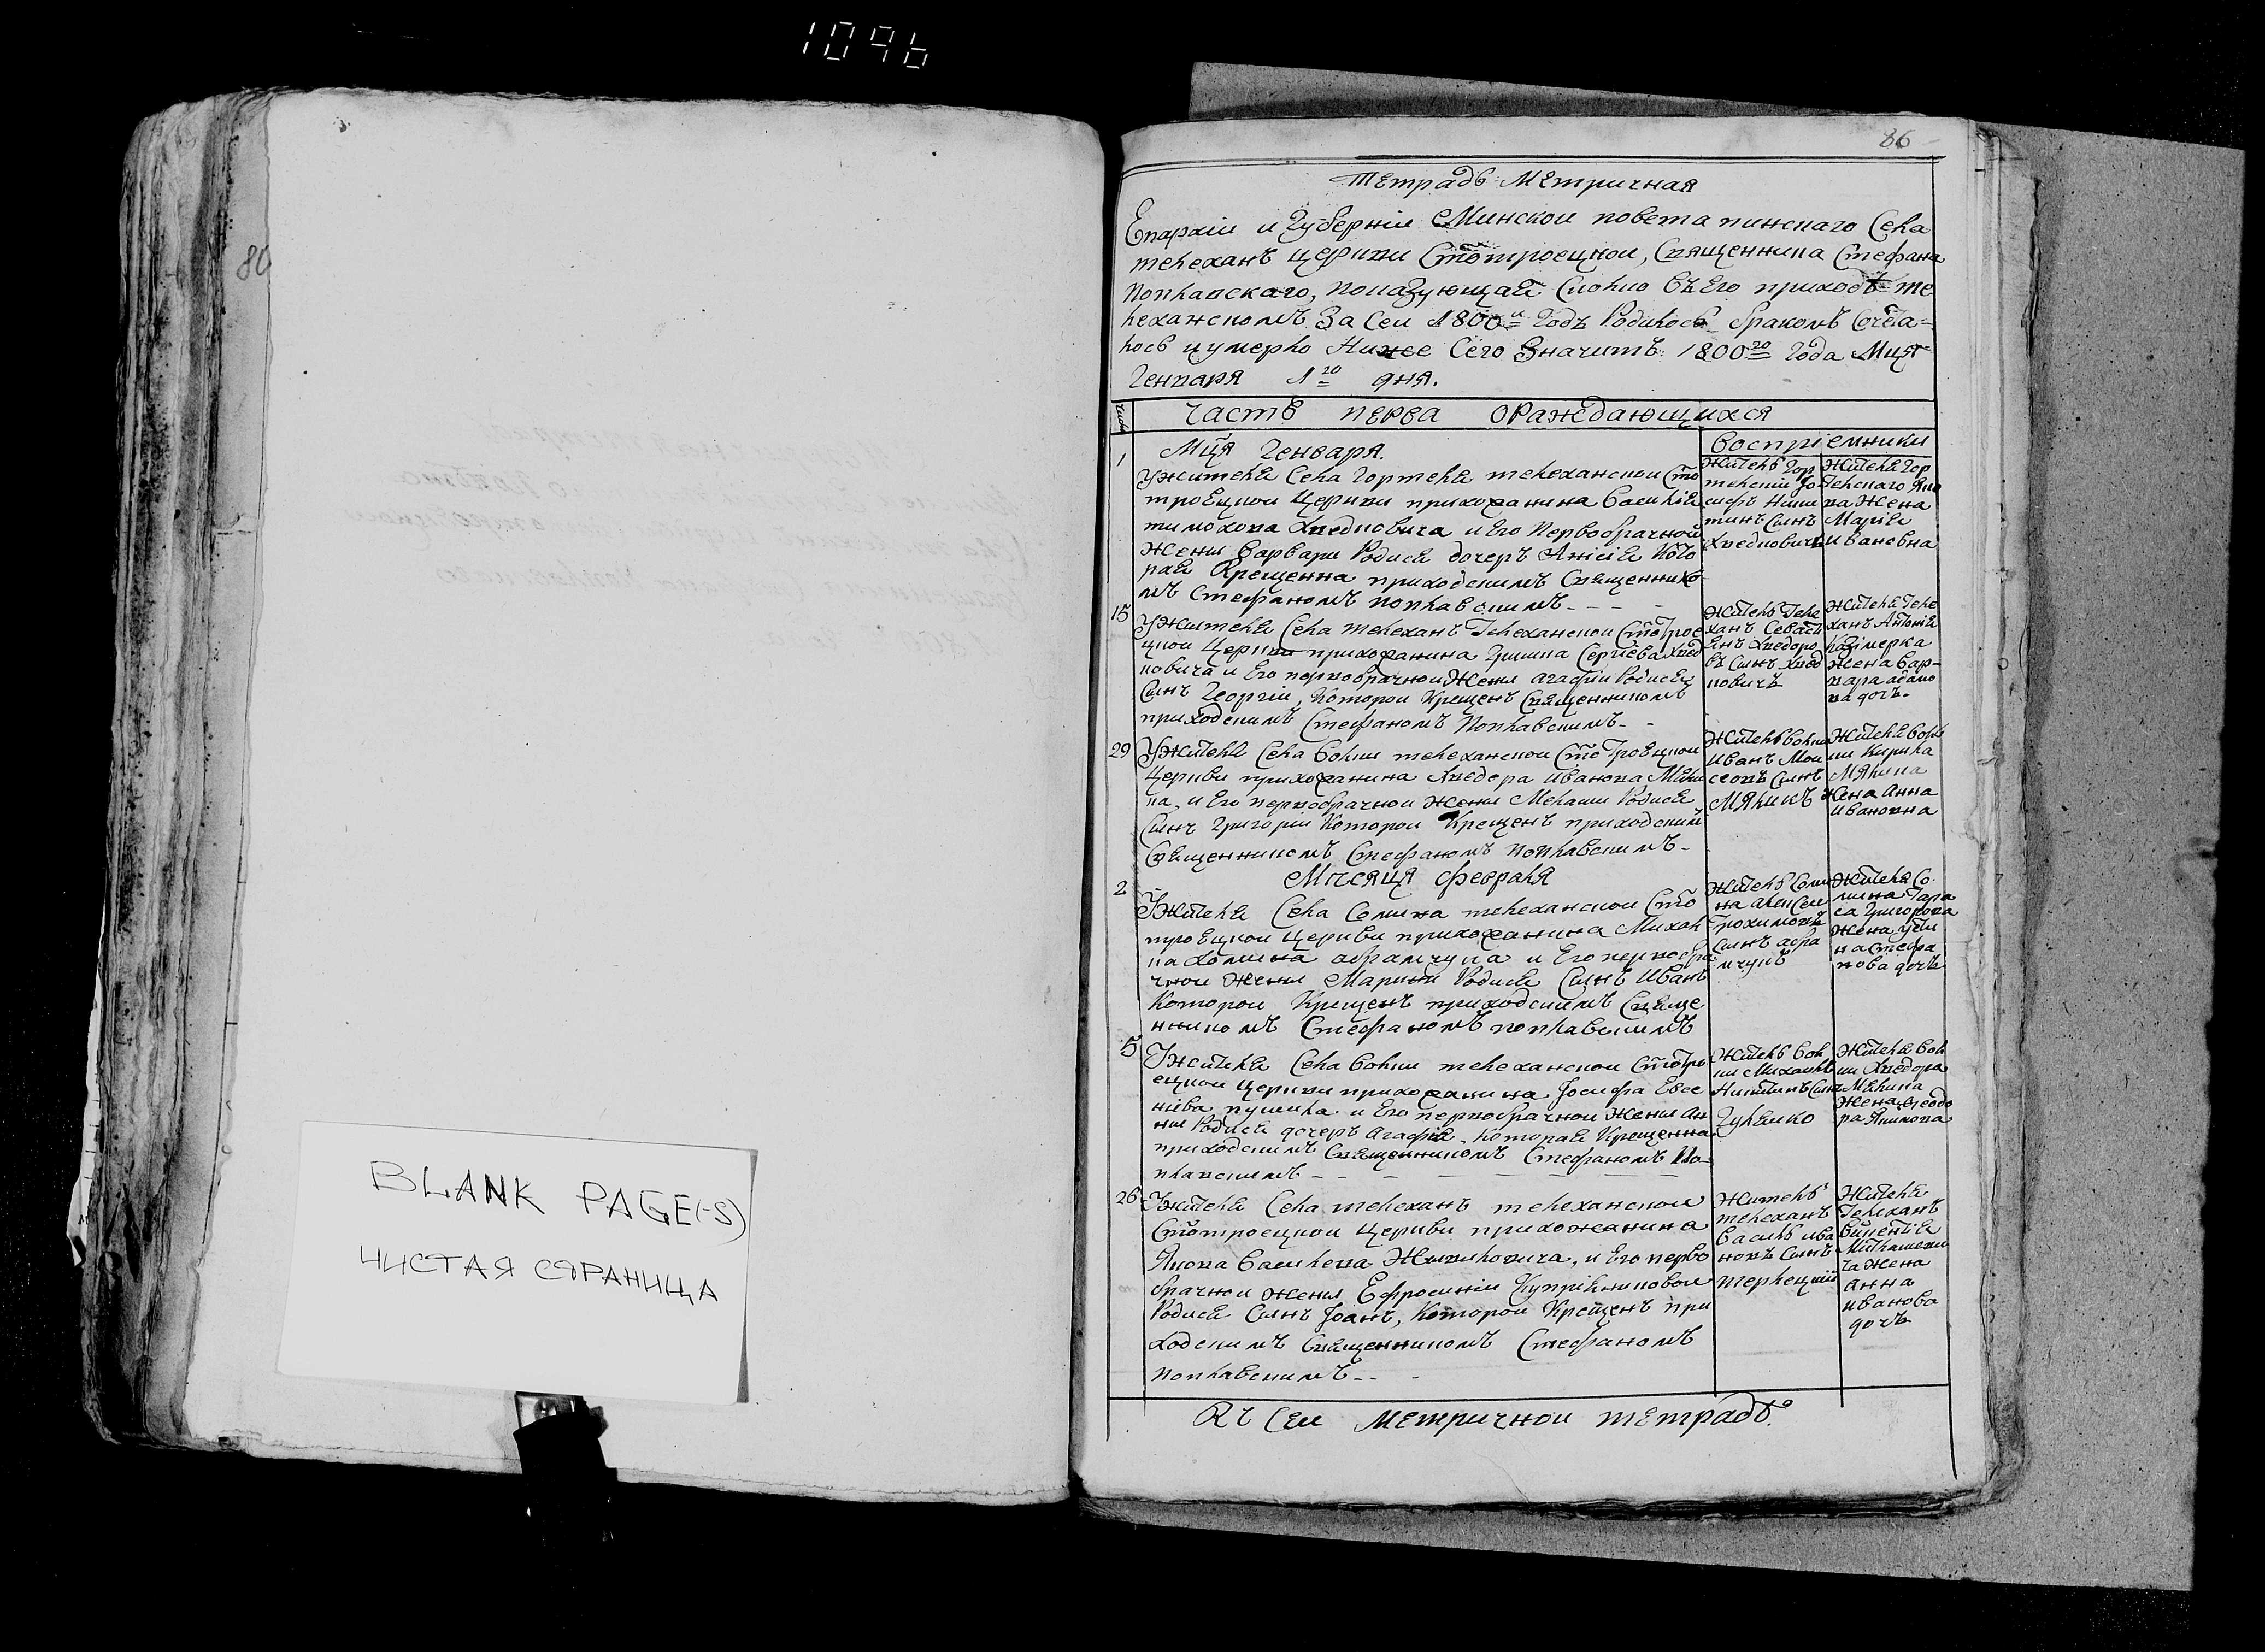 1096
80
BLANK PAGE(-S)
ЧИСТАЯ СТРАНИЦА
86
Тетрадь Метричная
Епархіи и Губерніи Минской повета пинскаго Села
телеханъ церкви Стотроецкой, Священника Стефана
Поплавского, показующая сколко въ Его приходѣ те
леханскомъ За Сей 1800й Годъ Родилось браком Сочета-
лось и умерло Ниже Сего Значитъ 1800го Года Мця
Генваря 1го дня.
часть перва ораждающихся
Мця Генваря.
воспріемники
1
Ужителя Села Гортеля телеханской Сто
троецкой Церкви прихожанина Василія
тимохова Хведковича и Его Первобрачной
Жени Варвари Родися дочеръ Кото
рая Крещенна приходскимъ Священнико
мъ Стефаномъ поплавскимъ - - -
Житель Гор
тельскій Іо
сифъ
синъ
Хведковичъ
Жителя Гор
тельскаго
ва Жена
Марія
Ивановна
15
Ужителя Села телеханъ Телеханской СтоТрое
цкой Церкви прихожанина Сергіева Хвед
ковича и Его первобрачной Жени агафіи Родися
Синъ Георгій, Которой Крещенъ Священникомъ
приходскимъ Стефаномъ Поплавскимъ - -
Житель Теле
ханъ Севасти
янъ Хведоро
въ Синъ Хвед
ковичъ
Жителя Теле
ханъ Антонія
Казімерка
Жена Вар-
вара адамо
ва дочъ.
29
Ужителя Села Волки телеханской СтоТроецкой
Церкви прихожанина Хведора Иванова
ка, и Его первобрачной жени Мелании Родися
Синъ Григорій Которой Крещенъ приходский
Священникомъ Стефаномъ поплавскимъ -
Житель Волки
Иванъ Мои
сеовъ Синъ
Мяликъ
Жителя Вол
ки Кирила
Мялика
Жена Анна
Ивановна
Мѣсяця февраля
2
Ужителя Села Сомина телеханской Сто
троецкой Церкви прихожанина
абрамчука и Его первобра
чной Жени Марини Родися Синъ Иванъ
Которой Крещенъ приходскимъ Свяще
нникомъ Стефаномъ поплавскимъ
Житель Соми
на алексей
Трохимовъ
Синъ абра
мчукъ
Жителя Со
мина Тара
са Григорова
Жена
на Стефа
нова дочъ
5
Ужителя Села Волки телеханской СтоТро
ецкой Церкви прихожанина Іосифа Евсе
ніева и Его первобрачной Жени Ан
ни Родися дочеръ агафія, Которая Крещенна
приходскимъ Священникомъ Стефаномъ По-
плавскимъ - - -
Житель Вол
ки Михаилъ
Никитинъ Синъ
Жителя Вол
ки Хведора
Мялика
Жена Феодо
ра Якимова
26
Ужителя Села телеханъ телеханской
Стотроецкой Церкви прихожанина
Якова Василева и Его перво
брачной Жени Ефросиніи
Родися Синъ Іоанъ, Которой Крещенъ при
ходскимъ Священникомъ Стефаномъ
поплавскимъ - - -
Житель
телеханъ
Василь ива
новъ Синъ
терлецкій
Жителя
Телеханъ
Викентія
ча Жена
Анна
Иванова
дочъ
Къ Сей Метричной тетрадѣ